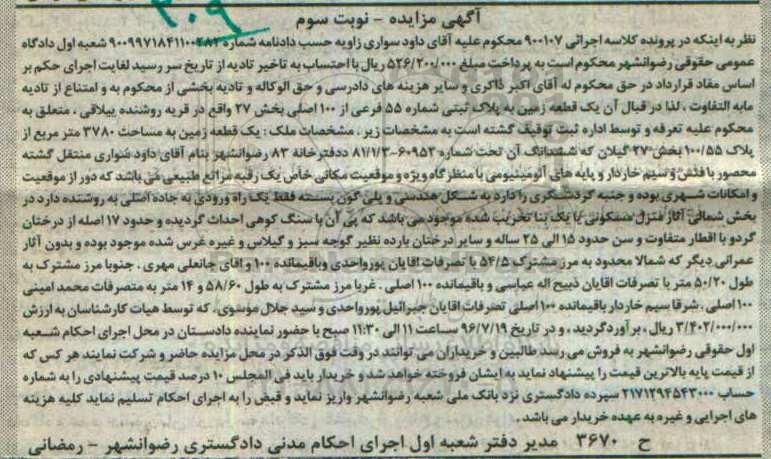 ۳۰۹
آگهی مزایده - نوبت سوم
نظر به اینکه در پرونده کلاسه اجرائی ۹۰۰۱۰۷ محکوم علیه آقای داود سواری زاویه حسب دادنامه شماره ۹۰۰۹۹۷۱۸۴۱۱۰۰۲۸۲ شعبه اول دادگاه
عمومی حقوقی رضوانشهر محکوم است به پرداخت مبلغ ۵۲۶/۲۰۰/۰۰۰ ریال با احتساب به تاخیر تادیه از تاریخ سر رسید لغایت اجرای حکم بر
اساس مفاد قرارداد در حق محکوم له آقای اکبر ذاکری و سایر هزینه های دادرسی و حق الوکاله و تادیه بخشی از محکوم به و امتناع از تادیه
مابه التفاوت ، لذا در قبال آن یک قطعه زمین به پلاک ثبتی شماره ۵۵ فرعی از ۱۰۰ اصلی بخش ۲۷ واقع در قریه روشنده ییلاقی ، متعلق به
محکوم علیه تعرفه و توسط اداره ثبت توقیف گشته است به مشخصات زیر ، مشخصات ملک : یک قطعه زمین به مساحت ۳۷۸۰ متر مربع از
پلاک ۱۰۰/۵۵ بخش ۲۷ گیلان که ششدانگ آن تحت شماره ۶۰۹۵۲-۸۱/۱/۳ دفترخانه ۸۳ رضوانشهر بنام آقای داود سواری منتقل گشته
محصور با فنس و سیم خاردار و پایه های آلومینیومی با منظرگاه ویژه و موقعیت مکانی خاص یک رقبه مراتع طبیعی می باشد که دور از موقعیت
و امکانات شهری بوده و جنبه گردشگری را دارد به شکل هندسی و پلی گون بسته فقط یک راه ورودی به جاده اصلی به روشنده دارد در
بخش شمالی آثار منزل مسکونی یا یک بنا تخریب شده موجود می باشد که پی آن با سنگ کوهی احداث گردیده و حدود ۱۷ اصله از درختان
گردو با اقطار متفاوت و سن حدود ۱۵ الی ۲۵ ساله و سایر درختان بارده نظیر گوجه سبز و گیلاس و غیره غرس شده موجود بوده و بدون آثار
عمرانی دیگر که شمالا محدود به مرز مشترک ۵۴/۵ با تصرفات اقایان پورواحدی وباقیمانده ۱۰۰ و اقای جانعلی مهری . جنوبا مرز مشترک به
طول ۵۰/۲۰ متر با تصرفات اقایان ذبیح اله عباسی و باقیمانده ۱۰۰ اصلی . غربا مرز مشترک به طول ۵۸/۶۰ و ۱۴ متر به متصرفات محمد امینی
۱۰۰ اصلی ، شرقا سیم خاردار باقیمانده ۱۰۰ اصلی تصرفات اقایان جبرائیل پورواحدی و سید جلال موسوی ، که توسط هیات کارشناسان به ارزش
۳/۴۰۲/۰۰۰/۰۰۰ ریال ، برآورد گردید ، و در تاریخ ۹۶/۷/۱۹ ساعت ۱۱ الی ۱۱:۳۰ صبح با حضور نماینده دادستان در محل اجرای احکام شعبه
اول حقوقی رضوانشهر به فروش می رسد طالبین و خریداران می توانند در وقت فوق الذکر در محل مزایده حاضر و شرکت نمایند هر کس که
از قیمت پایه بالاترین قیمت را پیشنهاد نماید به ایشان فروخته خواهد شد و خریدار باید فی المجلس ۱۰ درصد قیمت پیشنهادی را به شماره
حساب ۲۱۷۱۲۹۴۵۴۳۰۰۰ سپرده دادگستری نزد بانک ملی شعبه رضوانشهر واریز نماید و قبض را به اجرای احکام تسلیم نماید کلیه هزینه
های اجرایی و غیره به عهده خریدار می باشد .
ح ۳۶۷۰ مدیر دفتر شعبه اول اجرای احکام مدنی دادگستری رضوانشهر - رمضانی